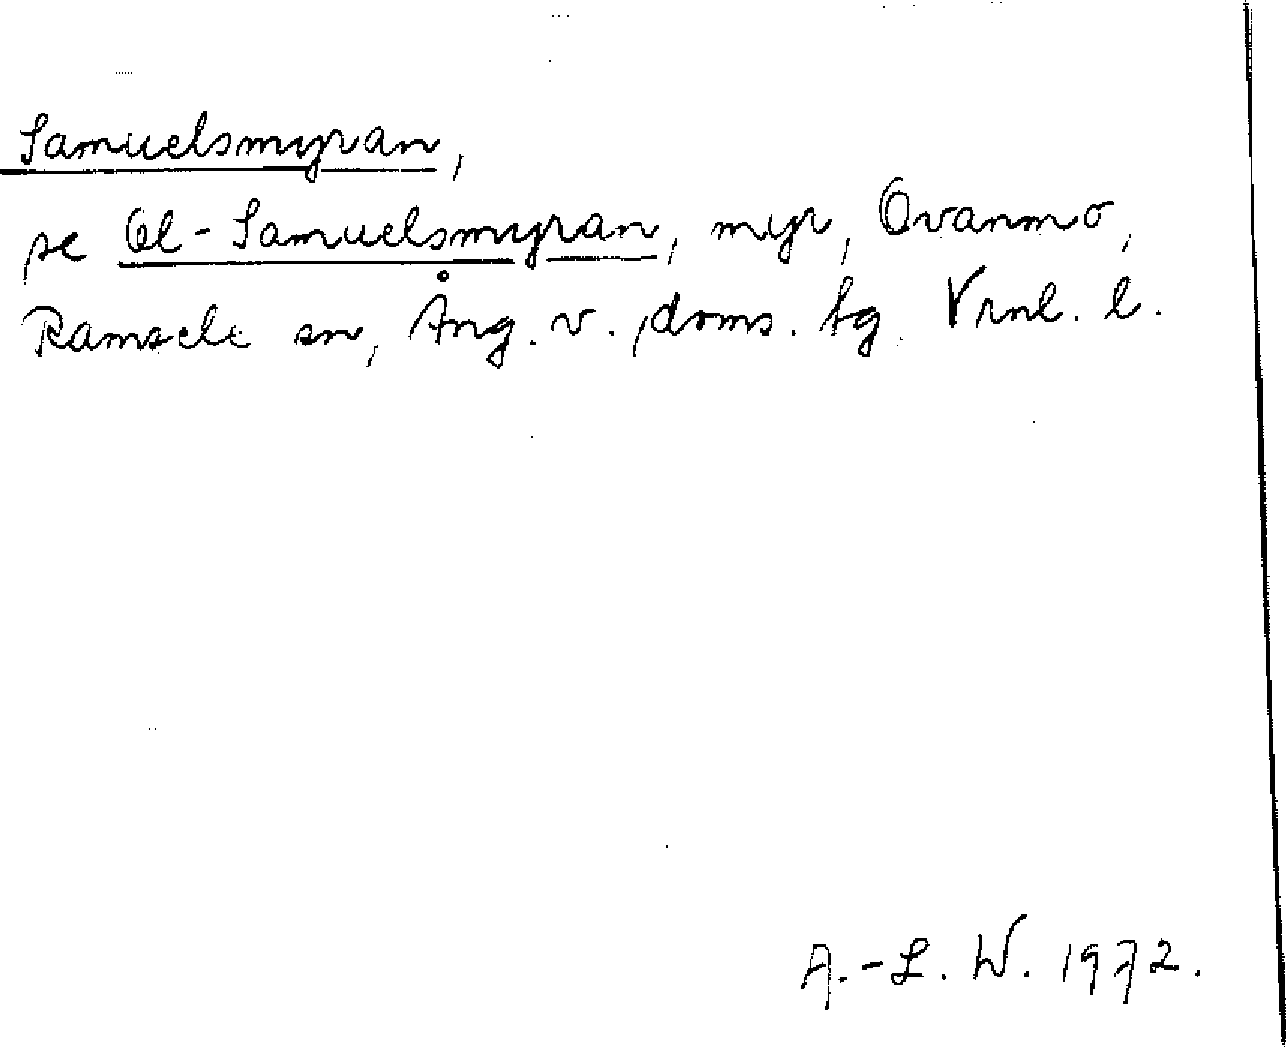 Samuelsmyran,
se Ol-Samuelsmyran, myr, Ovanmo,
Ramsele sn, Ång. v. doms. tg Vrnl. l.
A.-L. W. 1972.